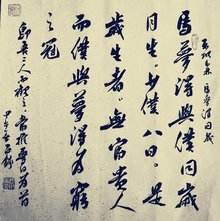 馬夢得同歲
馬夢得與僕同歲
月生少僕八日是
歲生者無富貴人
而僕與夢得為窮
之冠
即吾二人而觀之當推夢得為首